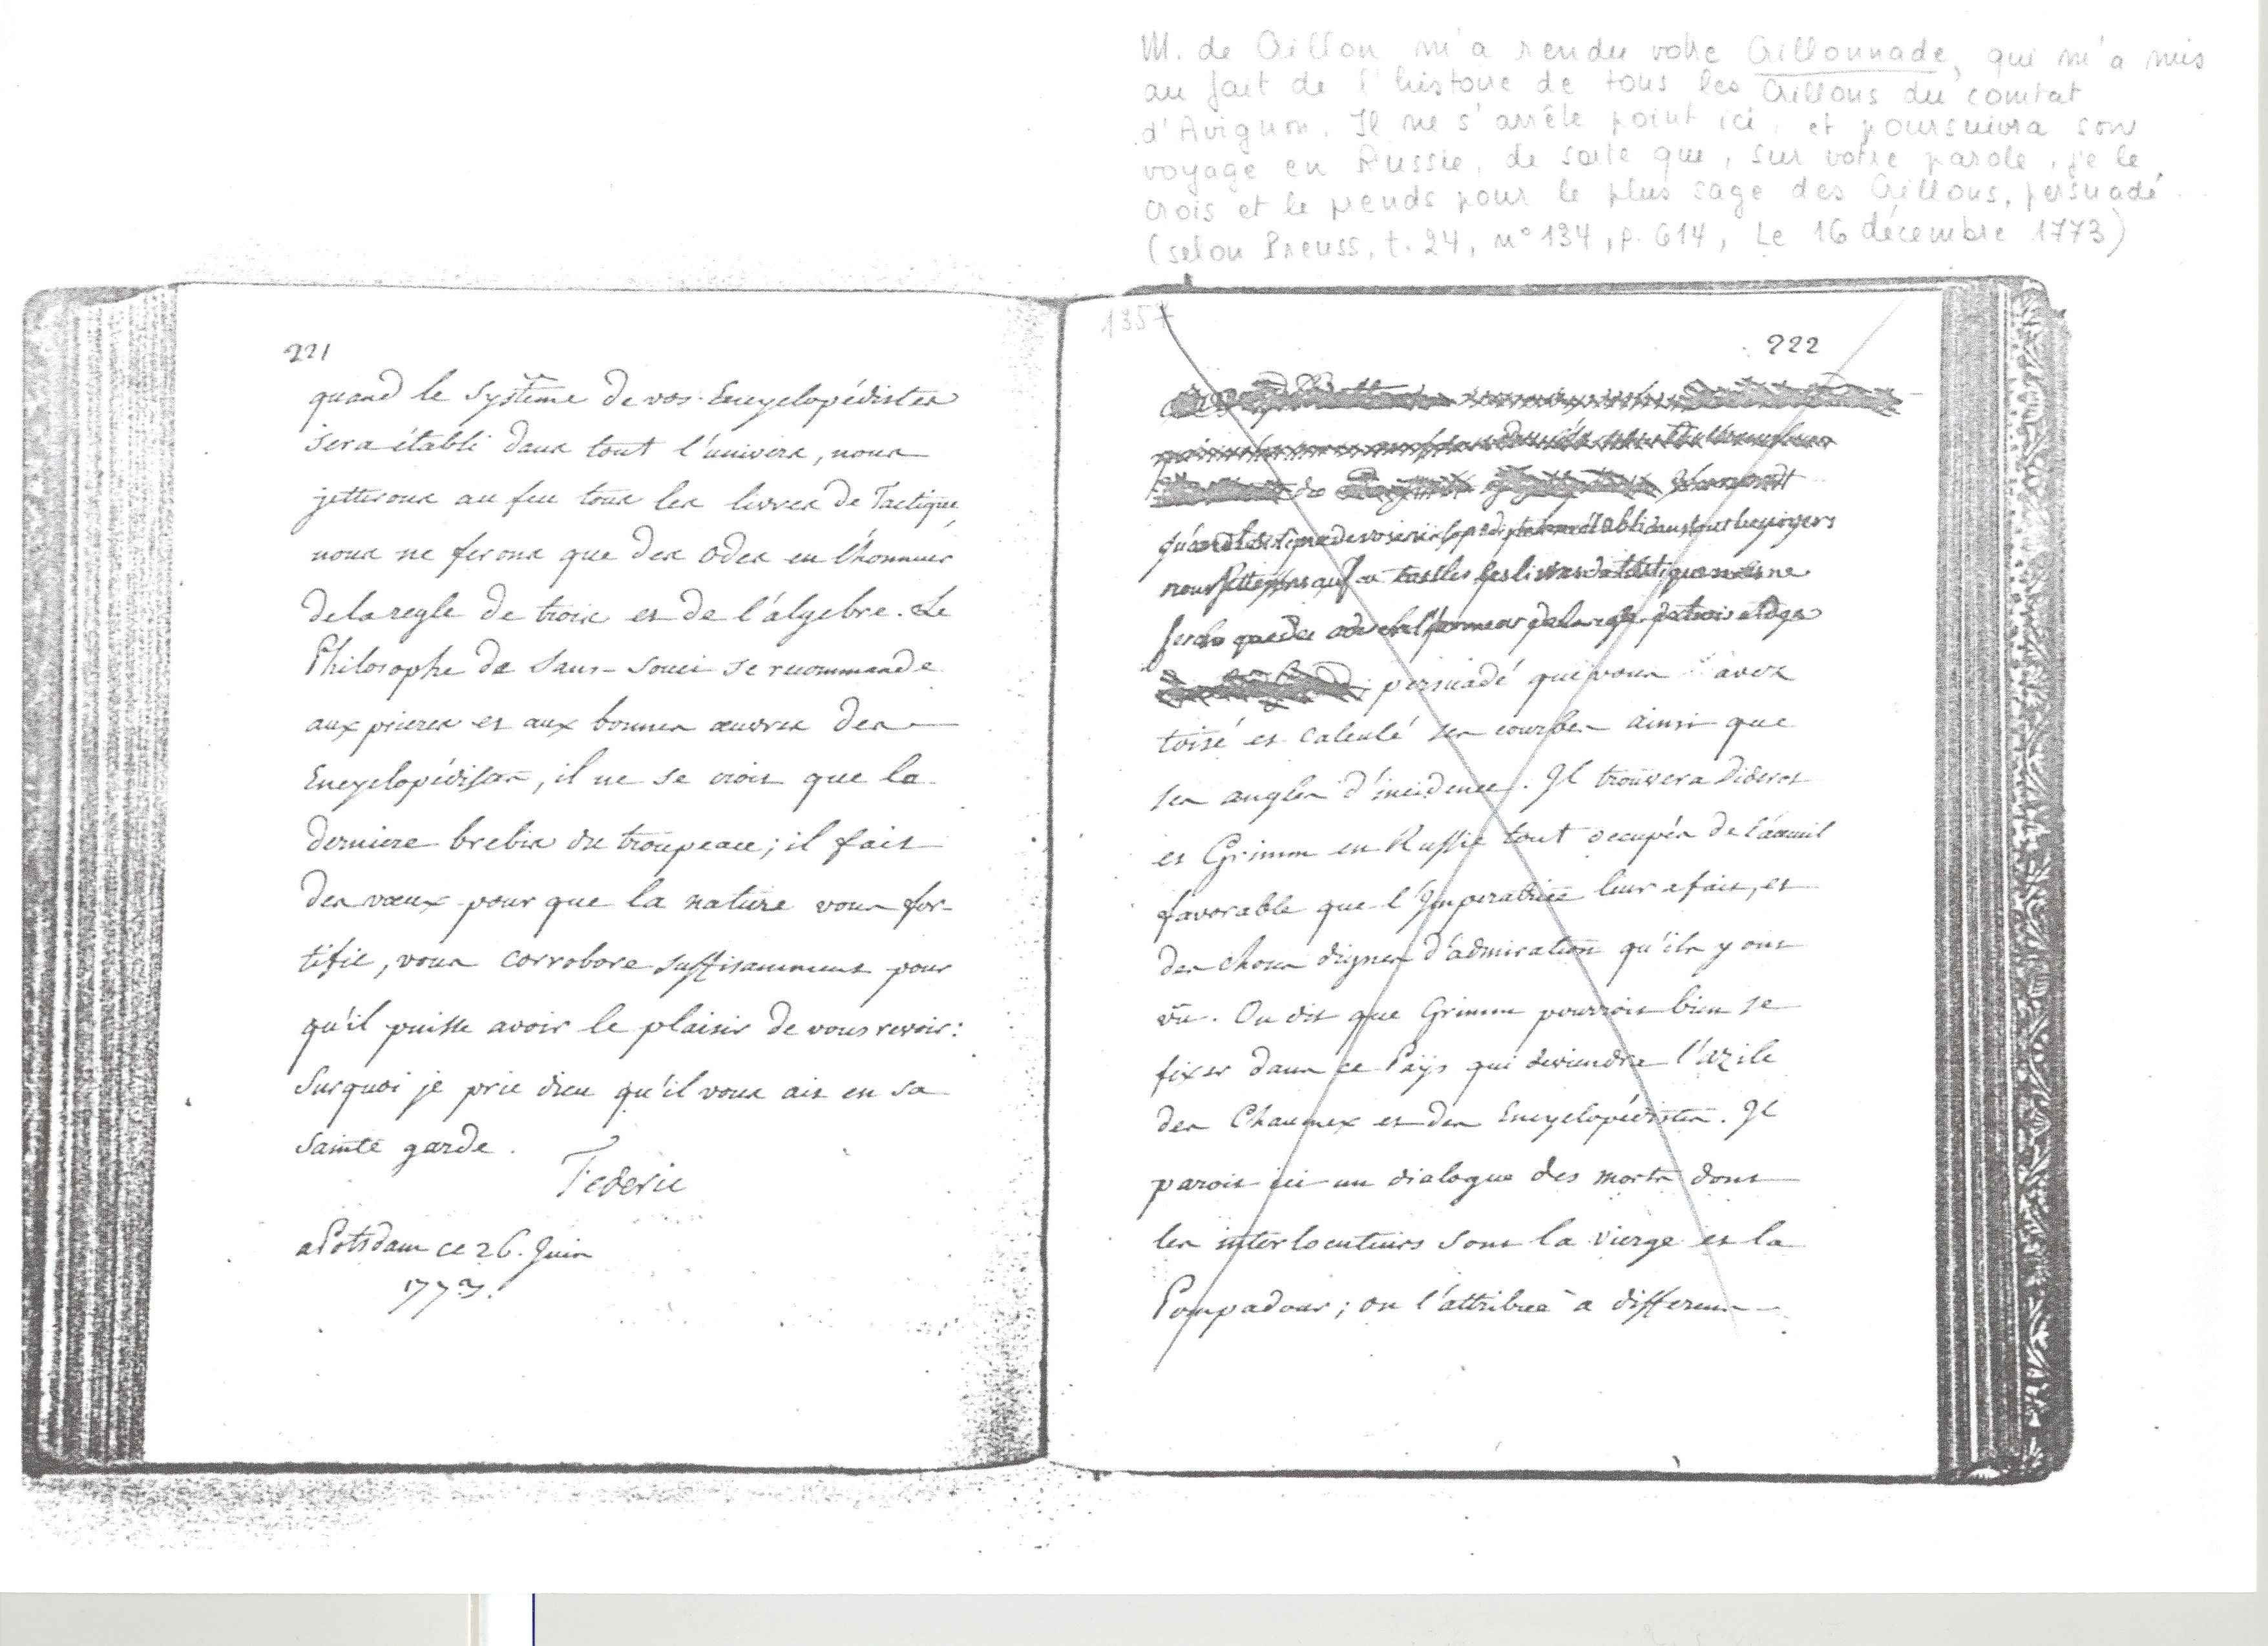 M. de Crillon m'a rendu votre Crillonnade, qui m'a mis
au fait de l'histoire de tous les Crillons du comtat
d'Avignon. Il ne s'arrête point ici, et poursuivra son
voyage en Russie, de sorte que, sur votre parole, je le
crois et le prends pour le plus sage des Crillons, persuadé
(selon Preuss, t. 24, n° 134, p. 614, Le 16 décembre 1773)
221
quand le Système de vos Encyclopédistes
sera établi dans tout l'univers, nous
jetterons au feu tous les livres de Tactique,
nous ne ferons que des Odes en l'honneur
de la regle de trois et de l'álgebre. Le
Philosophe de Sans-Souci se recommande
aux prieres et aux bonnes œuvres des
Encyclopédistes, il ne se croit que la
derniere brebis du troupeau; il fait
des vœux pour que la nature vous for-
tifie, vous corrobore suffisamment pour
qu'il puisse avoir le plaisir de vous revoir:
Surquoi je prie dieu qu'il vous ait en sa
Sainte garde.
Federic
a Potsdam ce 26. Juin
1773.
135
222
de
quand le de vos établi dans tout
nous au feu les livres de tactique nous ne
que des de la regle de trois et de
persuadé que vous avez
toisé et calculé ses courbes ainsi que
ses angles d'incidence. Il trouvera Diderot
et Grimm en Russie tout occupés de l'acceuil
favorable que l'Imperatrice leur a fait, et
des choses dignes d'admiration qu'ils y ont
vû. On dit que Grimm pourroit bien se
fixer dans ce Païs qui deviendra l'azile
des Chaumex et des Encyclopédistes. Il
paroit ici un dialogue des morts dont
les interlocuteurs sont la vierge et la
Pompadour; on l'attribue a differens